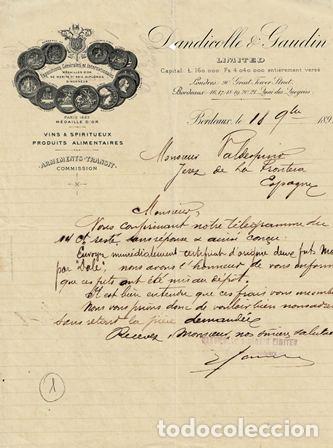 Dandicolle & Gaudin
LIMITED
Capital: £ 160.000 Fs 4.040.000 entièrement versé
Londres
Bordeaux 16, 17, 18, 19, 20, 21, Quai des
Expositions Générales et Internationales
MÉDAILLES D'OR
PARIS 1889
MÉDAILLE D'OR
VINS & SPIRITUEUX
PRODUITS ALIMENTAIRES
ARMEMENTS-TRANSIT
COMMISSION
Bordeaux, le 11 9bre 189
Monsieur Valdespino
Jerez de La Frontera
Espagne
Monsieur,
Nous confirmant notre télégramme du
resté sans réponse & ainsi conçu:
Envoyez immédiatement certificat d'origine deux futs
par Dolé, nous avons l'honneur de vous informer
que ces futs ont été mis au dépôt.
Il est bien entendu que ces frais vous
Nous vous prions donc de vouloir bien nous
sans retard la pièce demandée
Recevez Monsieur, nos sincères salutations
LIMITED
1
todocoleccion